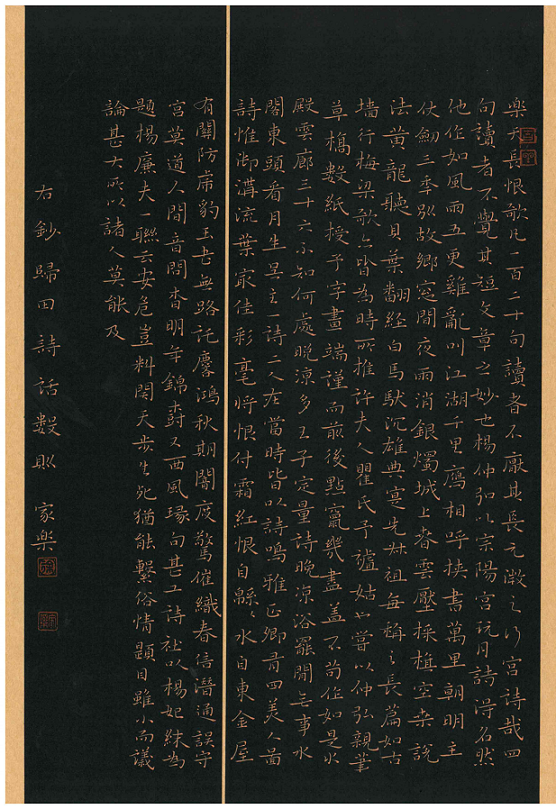 樂天長恨歌凡一百二十句讀者不厭其長元微之行宮詩哉四
句讀者不覺其短文章之妙也楊仲弘以宗陽宮玩月詩得名然
他作如風雨五更雞亂叫江湖千里雁相呼挾書萬里朝明主
仗劍三季別故鄉窓間夜雨消銀燭城上春雲壓採樓空桒說
法黃龍聽貝葉翻經白馬馱沉雄典實先叔祖每稱之長篇如古
墻行梅梁歌亦皆為時所推許夫人瞿氏予祖姑也嘗以仲弘親筆
草槁數紙授予字畫端謹而前後點竄幾盡蓋不苟作如是
殿雲廊三十六不知何處晚涼多王子定量詩晚涼浴罷閒無事水
閣東頭看月生吴主一詩二人在當時皆以詩鳴雅正卿有四美人畵
詩惟御溝流葉家佳彩毫將恨付霜紅恨自緜〻水自東金屋
有關防虎豹玉書無路託麟鴻秋期闇度驚催織春信潛通誤守
宮莫道人間音問杳明年錦樹又西風琢句甚工詩社以楊妃襪為
題楊廉夫一聯云安危豈料關天步生死猶能繫俗情題目雖小而議
論甚大所以諸人莫能及
右鈔歸田詩話數則 家樂